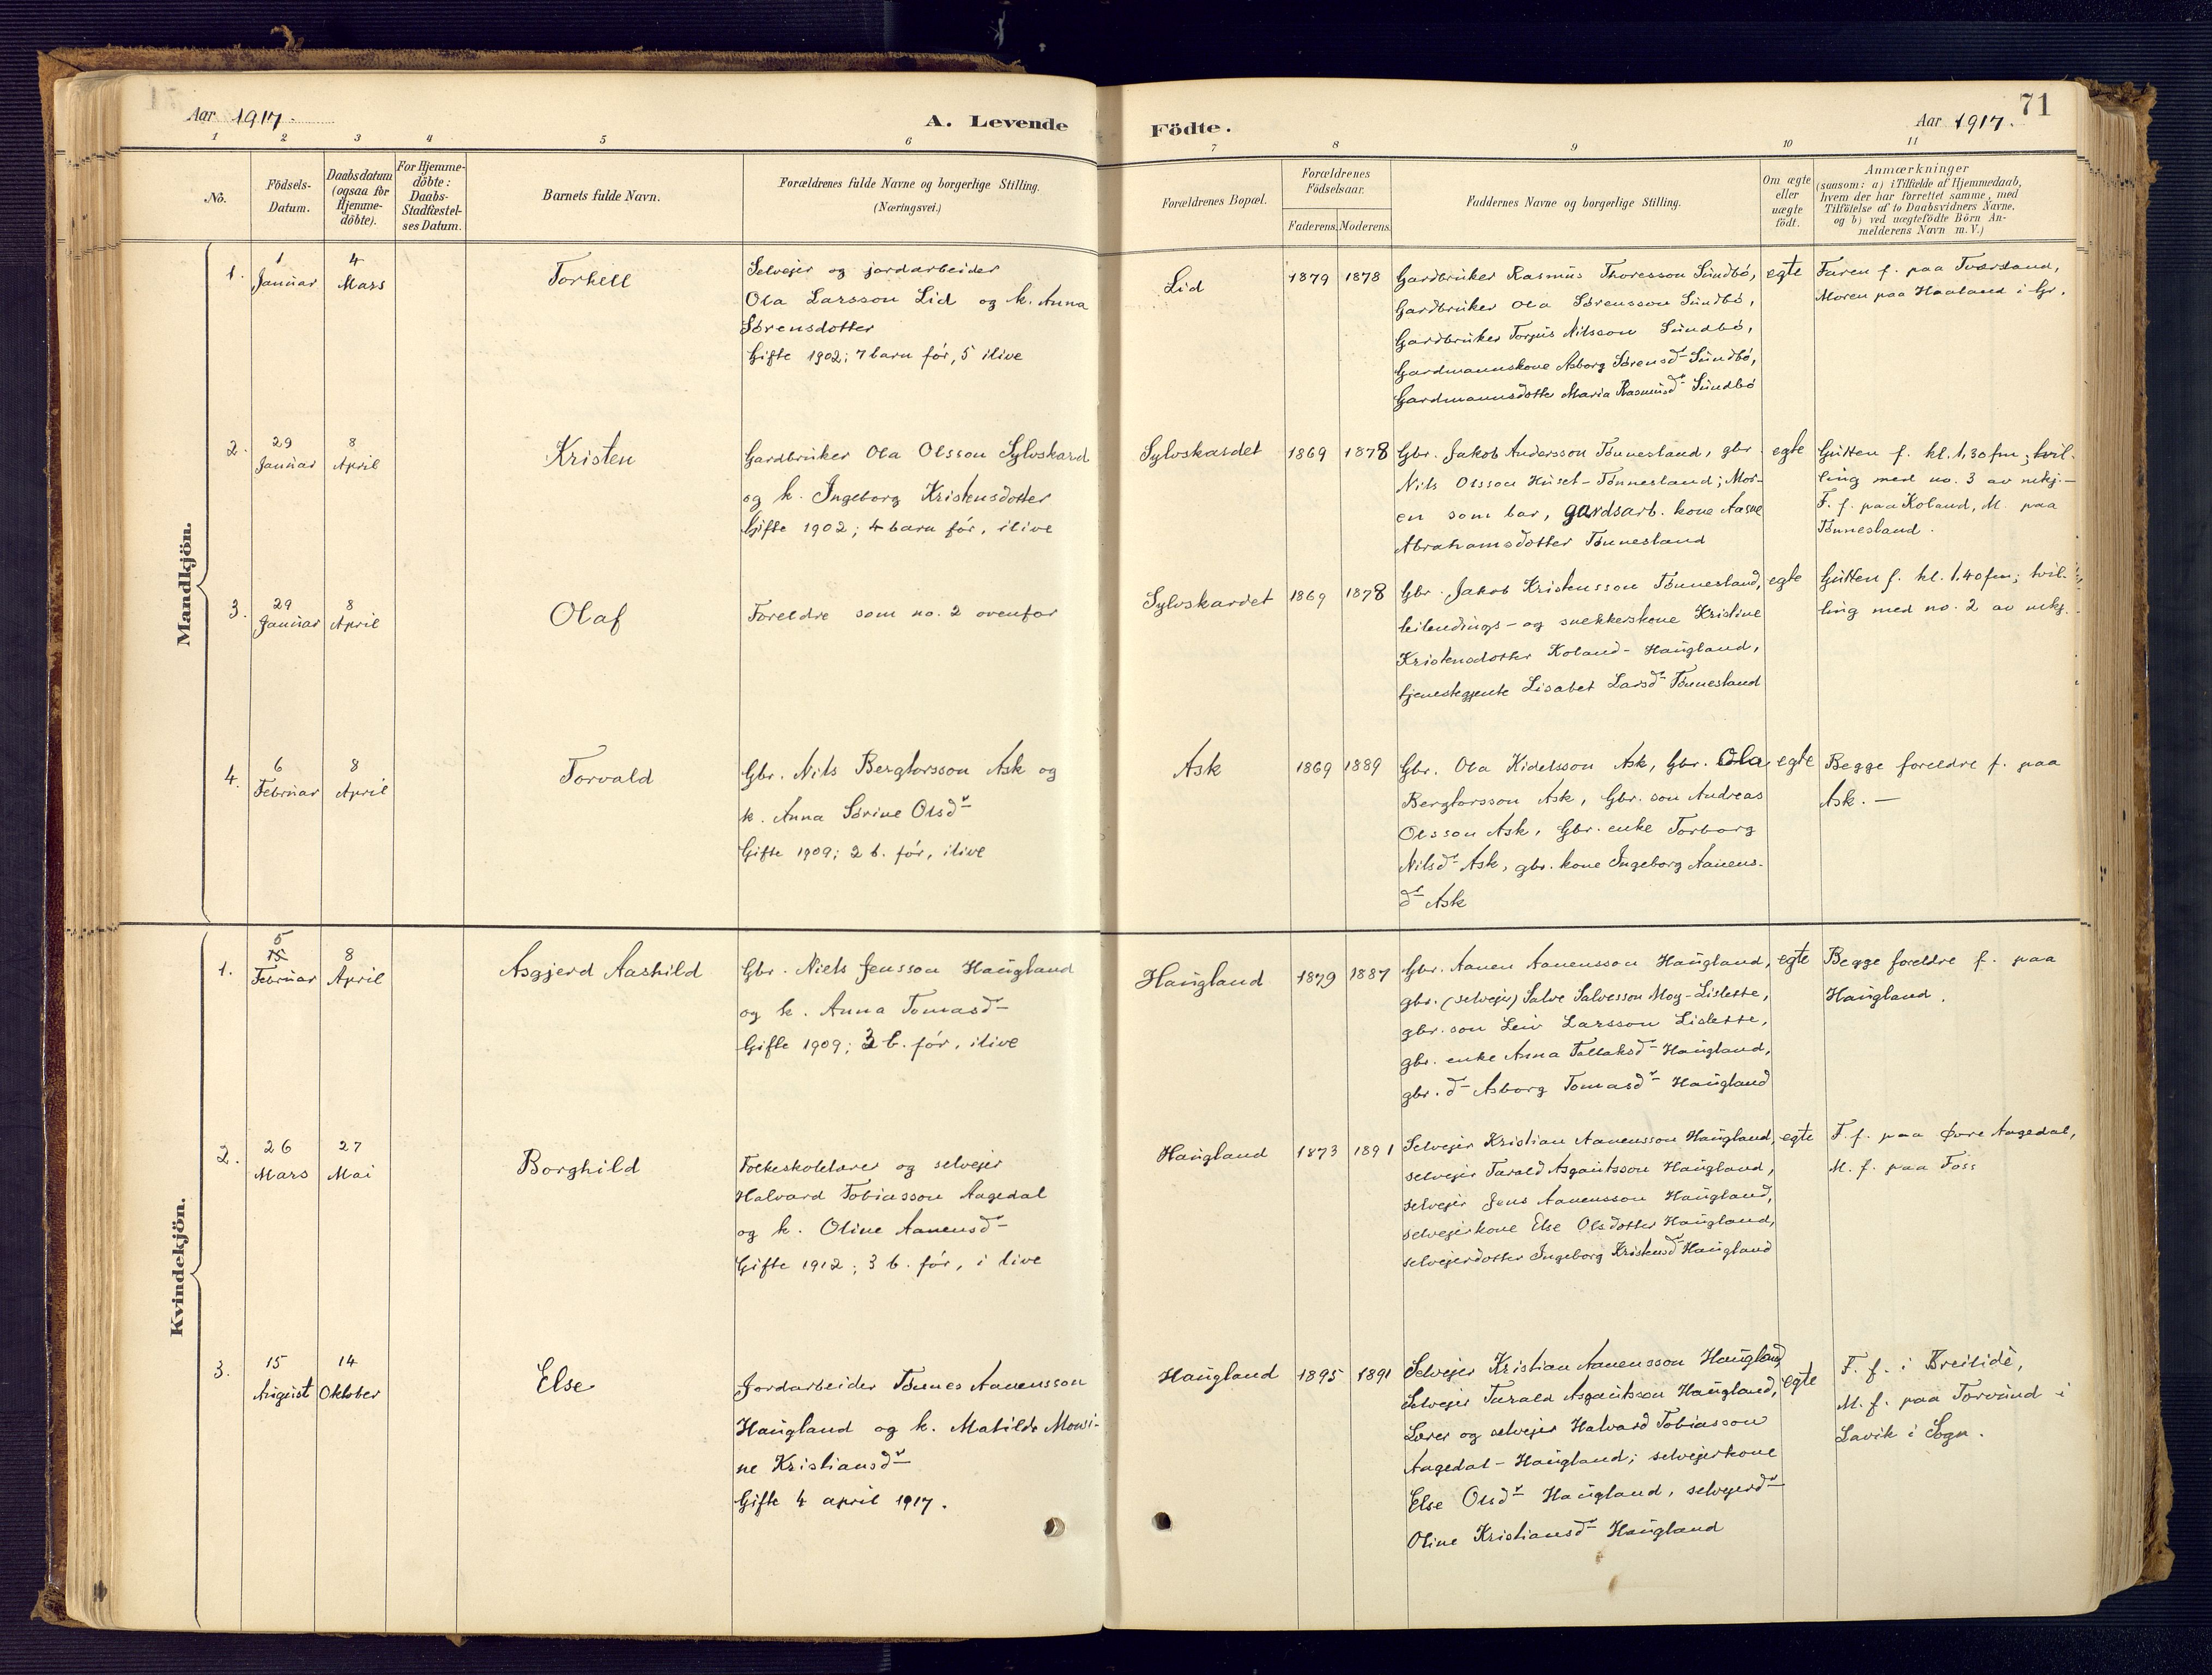 Aar 1917.
A. Levende
Födte.
Aar 1917.
71
1 2 3 4 5 6 7 8 9 10 11
No.
Födsels-
Datum.
Daabsdatum
(ogsaa for
Hjemme-
döbte).
For Hjemme-
döbte:
Daabs-
Stadfæstel-
ses Datum.
Barnets fulde Navn.
Forældrenes fulde Navne og borgerlige Stilling.
(Næringsvei.)
Forældrenes Bopæl.
Forældrenes
Födselsaar.
Faderens. Moderens.
Faddernes Navne og borgerlige Stilling.
Om ægte
eller
uægte
födt.
Anmærkninger
(saasom: a) i Tilfælde af Hjemmedaab,
hvem der har forrettet samme, med
Tilföielse af to Daabsvidners Navne,
og b) ved uægtefödte Börn An-
melderens Navn m. V.)
Mandkjön.
1.
1
Januar
4
Mars
Torkell
Selvejer og jordarbeider
Ola Larsson Lid og k. Anna
Sørensdotter
Gifte 1902; 7 barn før, 5 ilive
Lid
1879 1878
Gardbruker Rasmus Thoresson Sundbø,
Gardbruker Ola Sørensson Sundbø,
Gardbruker Torjus Nilsson Sundbø,
Gardmannskone Asborg Sørensdr Sundbø,
Gardmannsdotte Maria Rasmusdr Sundbø
egte
Faren f. paa Tveitland,
Moren paa Haaland i Gr.
2.
29
Januar
8
April
Kristen
Gardbruker Ola Olsson Sylvskard
og k. Ingeborg Kristensdotter
Gifte 1902; 4 barn før, ilive
Sylvskardet
1869 1878
Gbr. Jakob Andersson Tønnesland, gbr.
Nils Olsson Huset-Tønnesland; Mor-
en som bar, gardsarb. kone Aasne
Abrahamsdotter Tønnesland
egte
Gutten f. kl. 1.30 fm; tvil-
ling med no. 3 av mkj.-
F. f. paa Koland, M. paa
Tønnesland.
3.
29
Januar
8
April
Olaf
Foreldre som no. 2 ovenfor
Sylvskardet
1869 1878
Gbr. Jakob Kristensson Tønnesland,
leilendings- og snekkerskone Kristine
Kristensdotter Koland-Haugland,
tjenestegjente Lisabet Larsdr Tønnesland
egte
Gutten f. kl. 1.40 fm; tvil-
ling med no. 2 av mkj.
4.
6
Februar
8
April
Torvald
Gbr. Nils Bergtorsson Ask og
k. Anna Sørine Olsdr
Gifte 1909; 2 b. før, ilive
Ask
1869 1889
Gbr. Ola Kidelsson Ask, Gbr. Ola
Bergtorsson Ask, Gbr. son Andreas
Olsson Ask, Gbr. enke Torborg
Nilsdr Ask, gbr. kone Ingeborg Aanens-
dr Ask
egte
Begge foreldre f. paa
Ask. —
Kvindekjön.
1.
5
15
Februar
8
April
Asgjerd Aashild
Gbr. Niels Jensson Haugland
og k. Anna Tomasdr
Gifte 1909; 3 b. før, ilive
Haugland
1879 1887
Gbr. Aanen Aanensson Haugland,
gbr. (selvejer) Salve Salvesson Moy-Lislette,
gbr. son Leiv Larsson Lislette,
gbr. enke Anna Tallaksdr Haugland,
gbr. dr Asborg Tomasdr Haugland
egte
Begge foreldre f. paa
Haugland.
2.
26
Mars
27
Mai
Borghild
Folkeskolelærer og selvejer
Halvard Tobiasson Aagedal
og k. Oline Aanensdr
Gifte 1912; 3 b. før, i live
Haugland
1873 1891
Selvejer Kristian Aanensson Haugland,
selvejer Tarald Asgautsson Haugland,
selvejer Jens Aanensson Haugland,
selvejerkone Else Olsdotter Haugland,
selvejerdotter Ingeborg Kristensdr Haugland
egte
F. f. paa Øvre Aagedal,
M. f. paa Foss
3.
15
August
14
Oktober
Else
Jordarbeider Tønnes Aanensson
Haugland og k. Matilde Mowi-
ne Kristiansdr
Gifte 4 april 1917.
Haugland
1895 1891
Selvejer Kristian Aanensson Haugland
Selvejer Tarald Asgautsson Haugland,
Lærer og selvejer Halvard Tobiasson
Aagedal-Haugland; selvejerkone
Else Olsdr Haugland, selvejerdr
Oline Kristiansdr Haugland
egte
F. f. i Breilidé,
M. f. paa Torvund i
Lavik i Sogn.